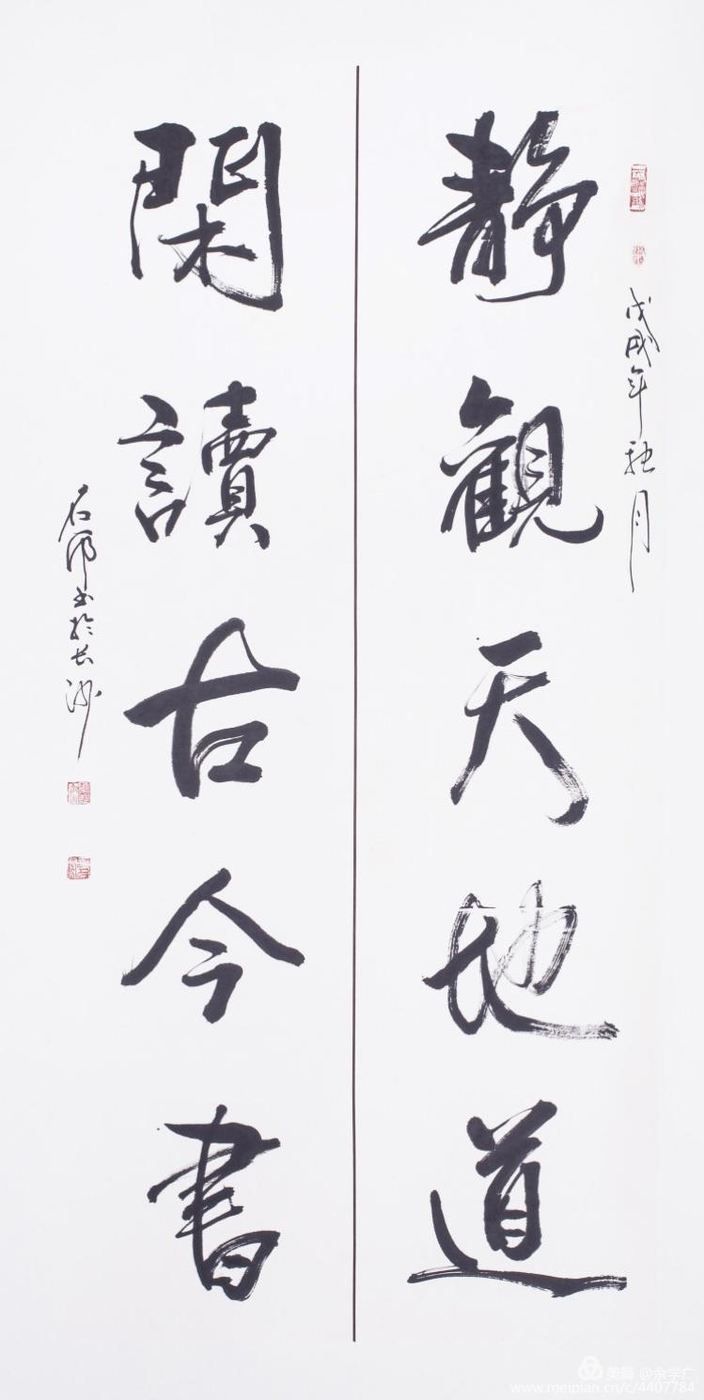 戊戌年秋月
静観天地道
閑讀古今書
石河書於长沙
美篇 @余学广
www.meipian.cn/c/4407784